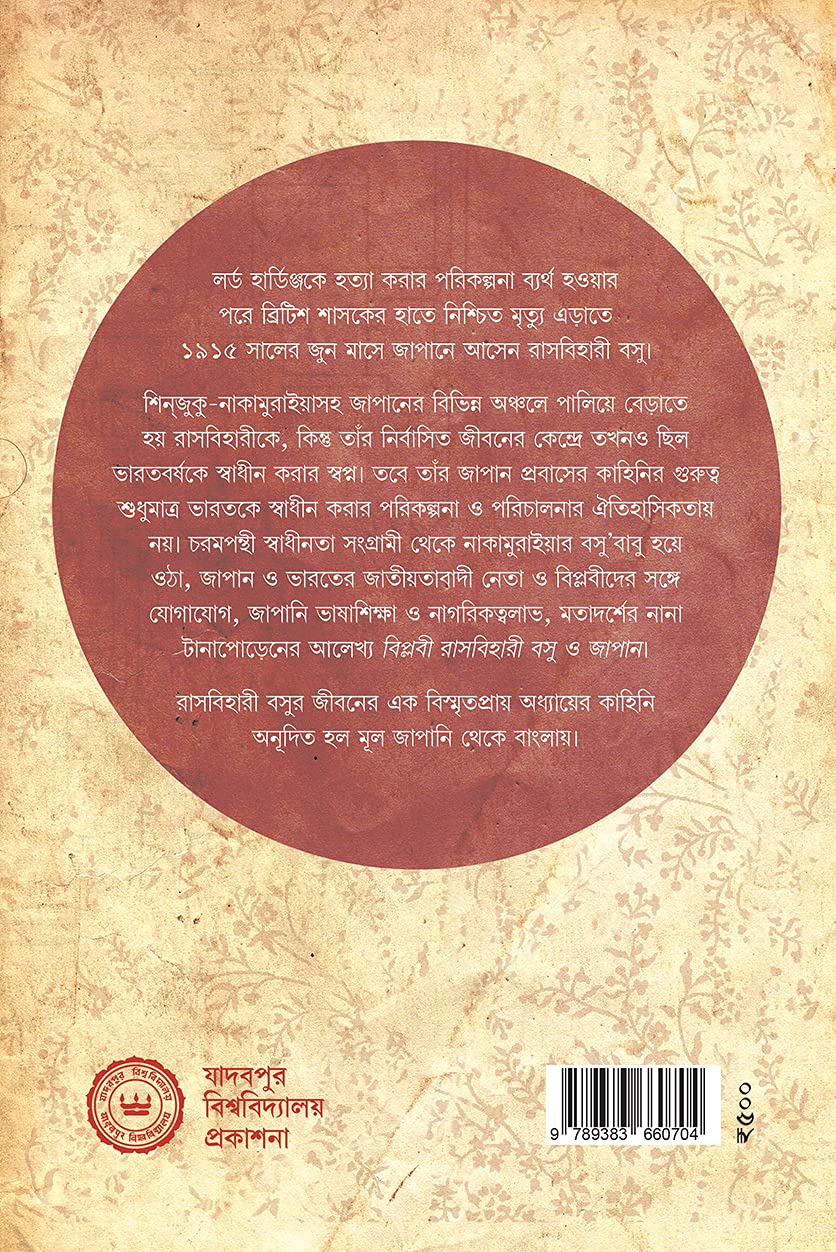 লর্ড হার্ডিঞ্জকে হত্যা করার পরিকল্পনা ব্যর্থ হওয়ার
পরে ব্রিটিশ শাসকের হাতে নিশ্চিত মৃত্যু এড়াতে
১৯১৫ সালের জুন মাসে জাপানে আসেন রাসবিহারী বসু।
শিন্‌জুকু-নাকামুরাইয়াসহ জাপানের বিভিন্ন অঞ্চলে পালিয়ে বেড়াতে
হয় রাসবিহারীকে, কিন্তু তাঁর নির্বাসিত জীবনের কেন্দ্রে তখনও ছিল
ভারতবর্ষকে স্বাধীন করার স্বপ্ন। তবে তাঁর জাপান প্রবাসের কাহিনির গুরুত্ব
শুধুমাত্র ভারতকে স্বাধীন করার পরিকল্পনা ও পরিচালনার ঐতিহাসিকতায়
নয়। চরমপন্থী স্বাধীনতা সংগ্রামী থেকে নাকামুরাইয়ার বসু’বাবু হয়ে
ওঠা, জাপান ও ভারতের জাতীয়তাবাদী নেতা ও বিপ্লবীদের সঙ্গে
যোগাযোগ, জাপানি ভাষাশিক্ষা ও নাগরিকত্বলাভ, মতাদর্শের নানা
টানাপোড়েনের আলেখ্য বিপ্লবী রাসবিহারী বসু ও জাপান।
রাসবিহারী বসুর জীবনের এক বিস্মৃতপ্রায় অধ্যায়ের কাহিনি
অনূদিত হল মূল জাপানি থেকে বাংলায়।
যাদবপুর বিশ্ববিদ্যালয়
যাদবপুর বিশ্ববিদ্যালয়
যাদবপুর
বিশ্ববিদ্যালয়
প্রকাশনা
9 789383 660704
₹৫০০